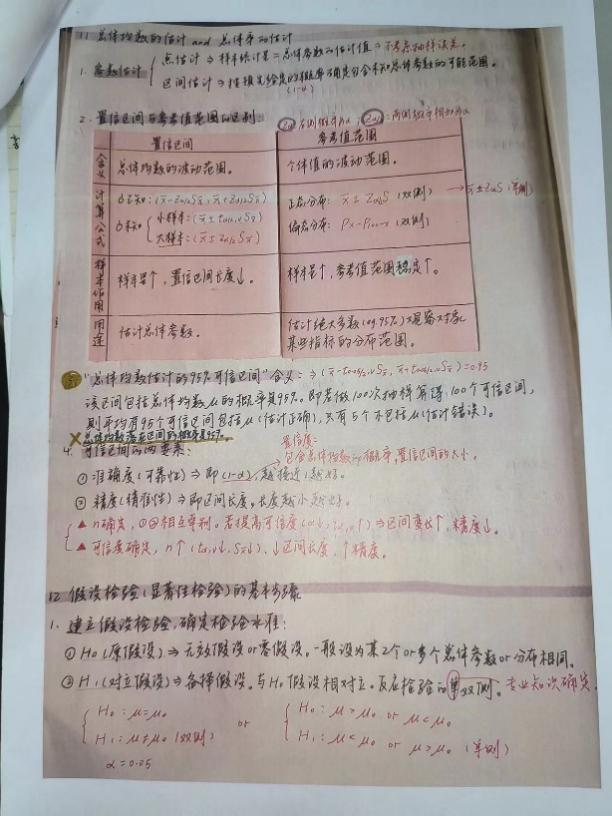 11 总体均数的估计 and 总体率的估计
1. 参数估计 { 点估计 ⇒ 样本统计量=总体参数的估计值 ⇒ 不考虑抽样误差。
区间估计 ⇒ 按预先给定的概率确定包含未知总体参数的可能范围。
(1-α)
2. 置信区间与参考值范围的区别:
置信区间 参考值范围
含义 总体均数的波动范围。 个体值的波动范围。
计算公式 σ已知: (x̄-Zα/2Sx̄, x̄+Zα/2Sx̄) 正态分布: x̄±Zα/2S (双侧) → x̄±ZαS (单侧)
σ未知 { 小样本: (x̄±tα/2,νSx̄) 偏态分布: Px~P100-x (双侧)
大样本: (x̄±Zα/2Sx̄)
样本作用 样本量↑, 置信区间长度↓。 样本量↑, 参考值范围稳定↑。
用途 估计总体参数。 估计绝大多数(eg.95%)观察对象
某些指标的分布范围。
3. "总体均数估计的95%可信区间"含义: ⇒ (x̄-t0.05/2,νSx̄, x̄+t0.05/2,νSx̄)=0.95
该区间包括总体均数μ的概率是95%。即若做100次抽样算得100个可信区间,
则平均有95个可信区间包括μ(估计正确), 只有5个不包括μ(估计错误)。
X 总体均数落在区间的概率是95%。
4. 可信区间的两要素:
置信度:
包含总体均数的概率,置信区间的大小。
① 准确度(可靠性) ⇒ 即(1-α), 越接近1越好。
② 精度(精准性) ⇒ 即区间长度, 长度越小越好。
▲ n确定, ①②相互牵制。若提高可信度(α↓, tα,ν↑) ⇒ 区间变长↑, 精度↓。
▲ 可信度确定, n↑ (tα,ν↓, Sx̄↓), ↓区间长度, ↑精度。
12 假设检验(显著性检验)的基本步骤
1. 建立假设检验, 确定检验水准:
① H₀(原假设) ⇒ 无效假设or零假设。一般设为某2个or多个总体参数or分布相同。
② H₁(对立假设) ⇒ 备择假设。与H₀假设相对立。反应检验的单双侧。专业知识确定
{ H₀: μ=μ₀ or { H₀: μ>μ₀ or μ<μ₀
H₁: μ≠μ₀ (双侧) H₁: μ<μ₀ or μ>μ₀ (单侧)
α=0.05